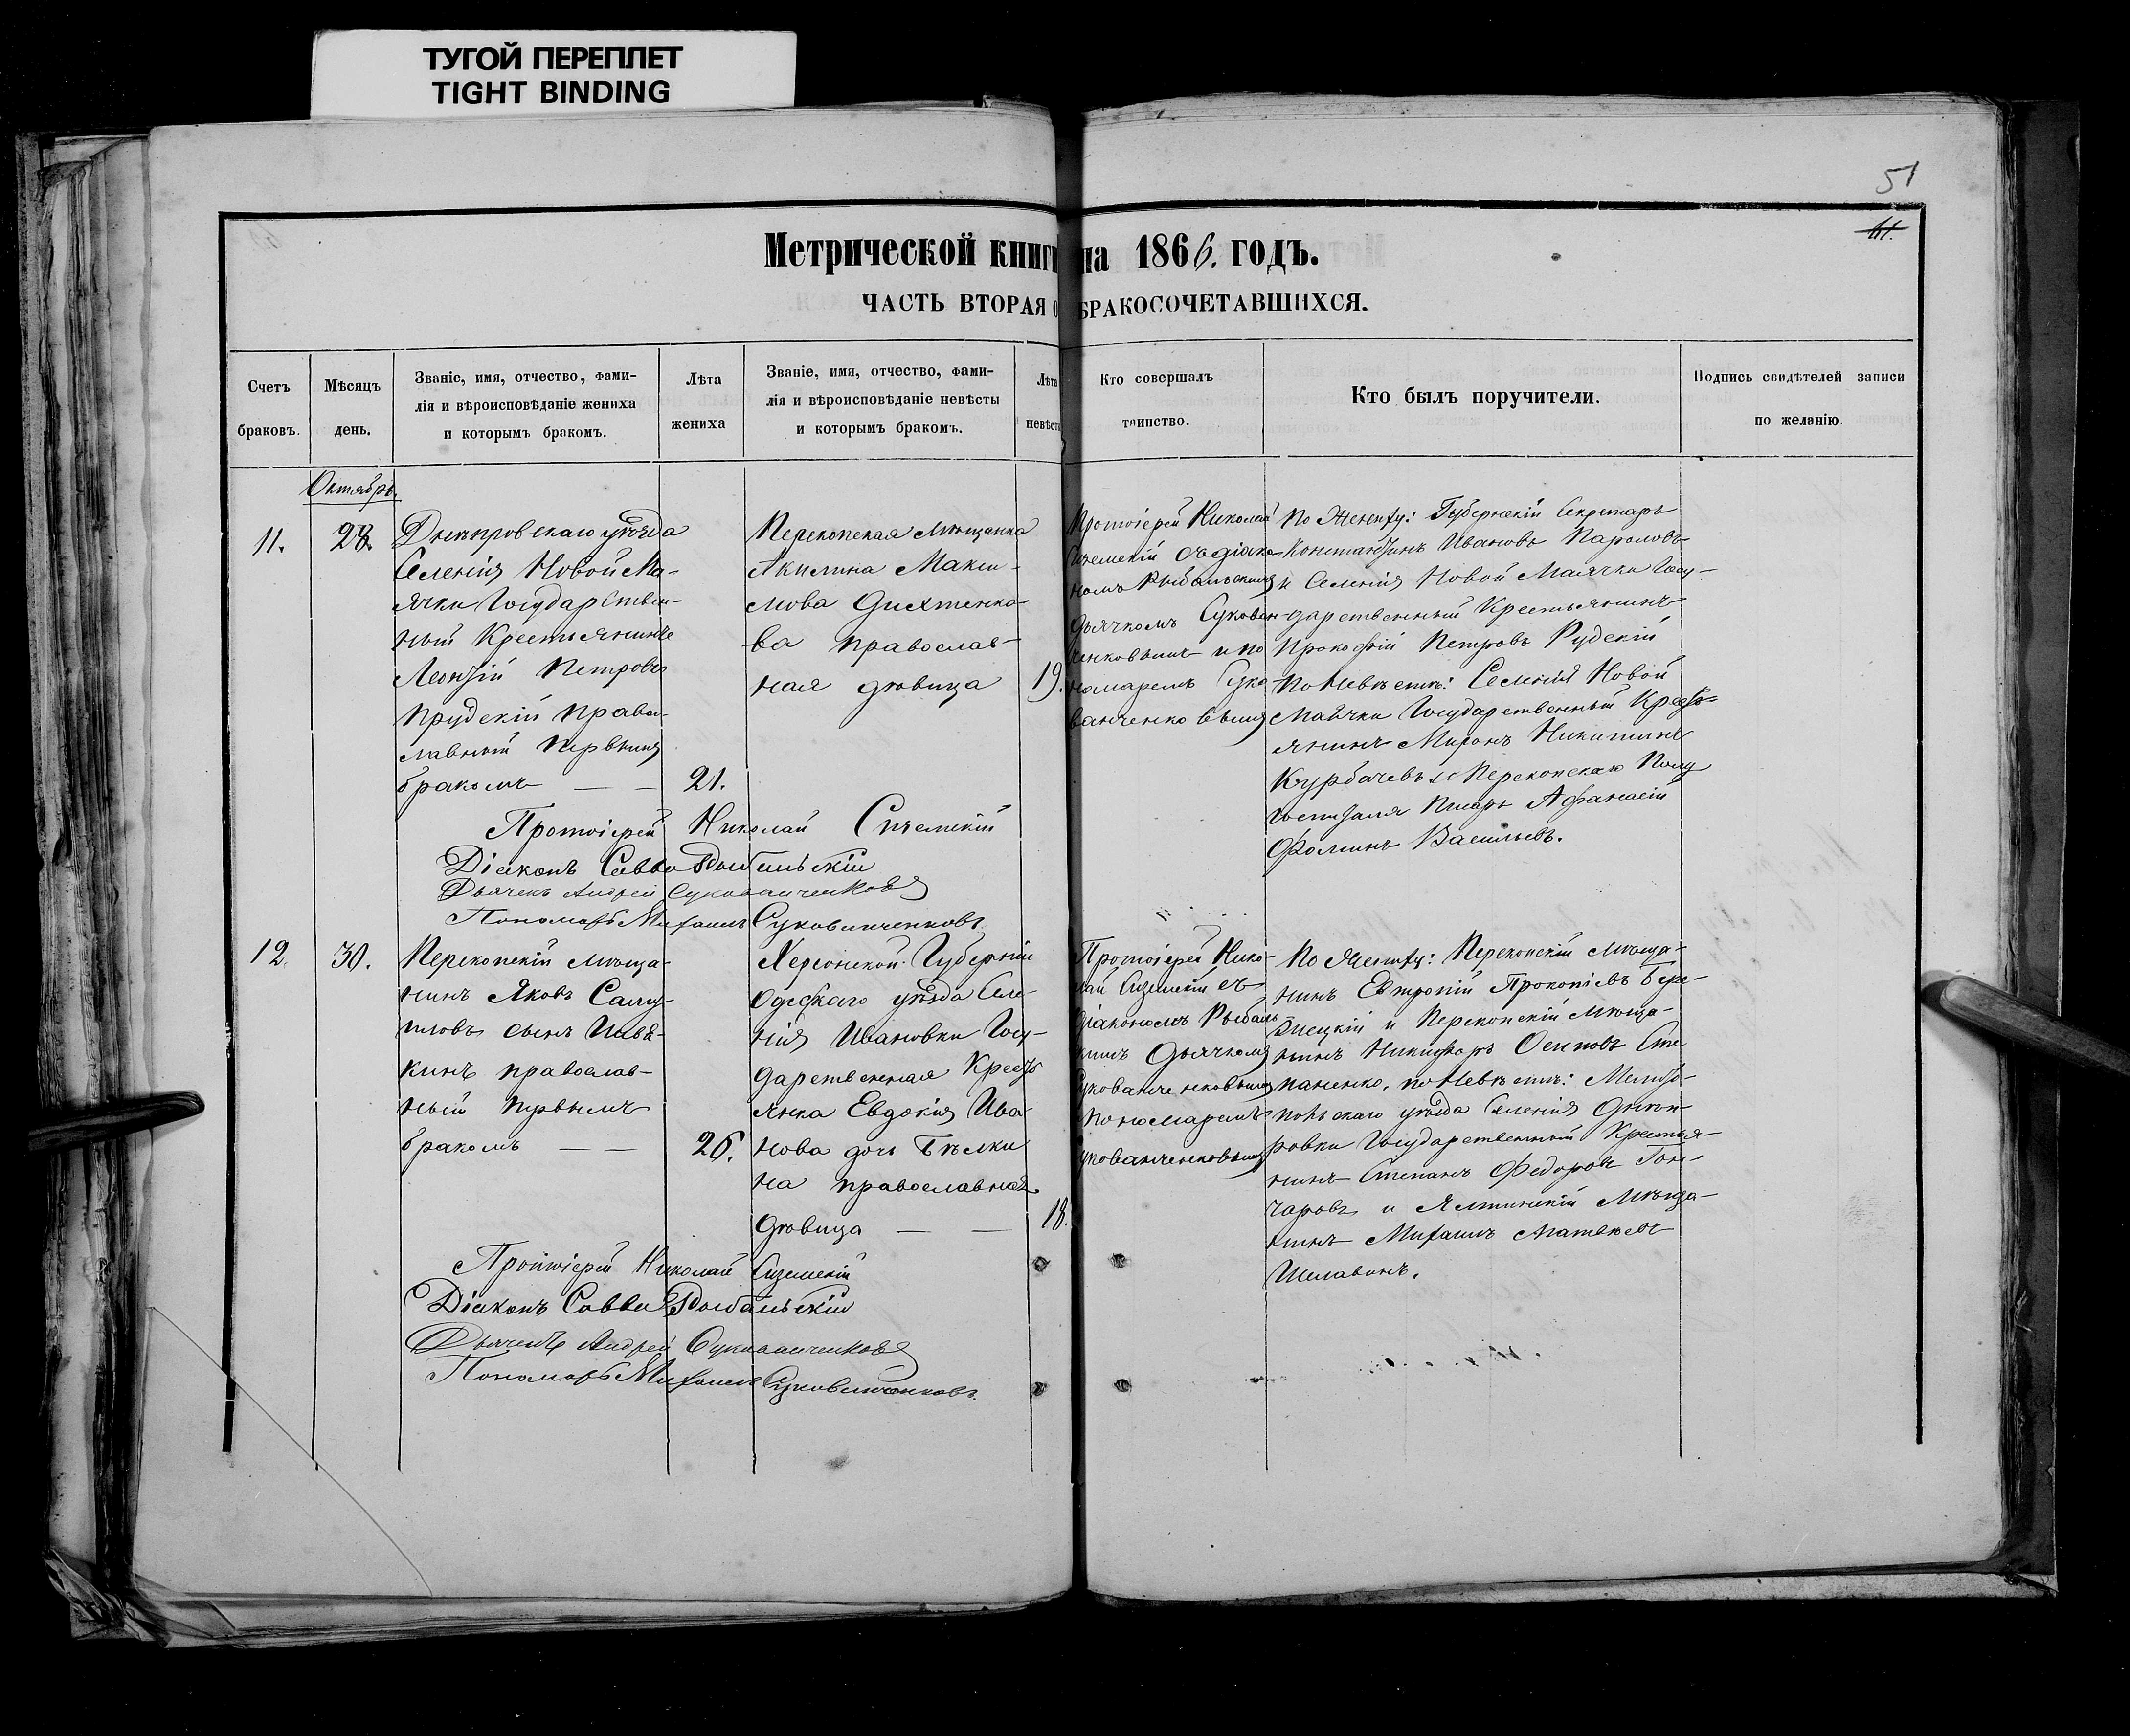 ТУГОЙ ПЕРЕПЛЕТ
TIGHT BINDING
51
Метрической книги на 1866. годъ.
ЧАСТЬ ВТОРАЯ О БРАКОСОЧЕТАВШИХСЯ.
Счетъ
браковъ.
Мѣсяцъ
день.
Званіе, имя, отчество, фами-
лія и вѣроисповѣданіе жениха
и которымъ бракомъ.
Лѣта
жениха
Званіе, имя, отчество, фами-
лія и вѣроисповѣданіе невѣсты
и которымъ бракомъ.
Лѣта
невѣсты
Кто совершалъ
таинство.
Кто былъ поручители.
Подпись свидѣтелей записи
по желанію.
Октябрь.
11.
28.
Днѣпровскаго уѣзда
Селенія Новой Ма-
ячки Государствен-
ный Крестьянинъ
Леонтій Петровъ
Прудскій Право-
славный первымъ
бракомъ
21.
Перекопская мѣщанка
Акилина Макси-
мова Дихтенко-
ва православ-
ная дѣвица
19.
Протоіерей Николай
съ діако-
номъ Рыбальскимъ
дьячкомъ Сукован-
ченковымъ и по
номаремъ Суко-
ванченковымъ
По Жениху: Губернскій Секретарь
Константинъ Ивановъ Паромовъ
и Селенія Новой Маячки Госу-
дарственный Крестьянинъ
Прокофій Петровъ Рудскій
по Невѣстѣ: Селенія Новой
Маячки Государственный Кресть-
янинъ Миронъ Никитинъ
Курбачевъ и Перекопскаго Полу
госпиталя Писарь Афанасій
Фоминъ Васильевъ.
Протоіерей Николай
Діаконъ Савва Рыбальскій
Дьячекъ Андрей Сукованченковъ
Пономарь Михаилъ Сукованченковъ
12.
30.
Перекопскій мѣща-
нинъ Яковъ Саму-
иловъ сынъ Ивъ-
кинъ православ-
ный первымъ
бракомъ
26.
Херсонской Губерніи
Одесскаго уѣзда Селе-
нія Ивановки Госу-
дарственная Кресть
янка Евдокія Ива
нова дочь Бѣлки
на православная
дѣвица
18.
Протоіерей Нико-
лай съ
діакономъ Рыбаль
кимъ дьячкомъ
Суковаченковымъ
пономаремъ
Суковаченковымъ
По Жениху: Перекопскій мѣща-
нинъ Евтропій Прокопіевъ Бере-
знецкій и Перекопскій мѣща-
нинъ Никифоръ Осиповъ Сте
паненко, по Невѣстѣ: Мелито-
польскаго уѣзда селенія Днѣп-
ровки Государственный Крестья-
нинъ Степанъ Федоровъ Гон-
чаровъ и Ялтинскій Мѣща-
нинъ Михаилъ Матвѣевъ
Шелавинъ.
Протоіерей Николай
Діаконъ Савва Рыбальскій
Дьячекъ Андрей Сукованченковъ
Пономарь Михаилъ Сукованченковъ